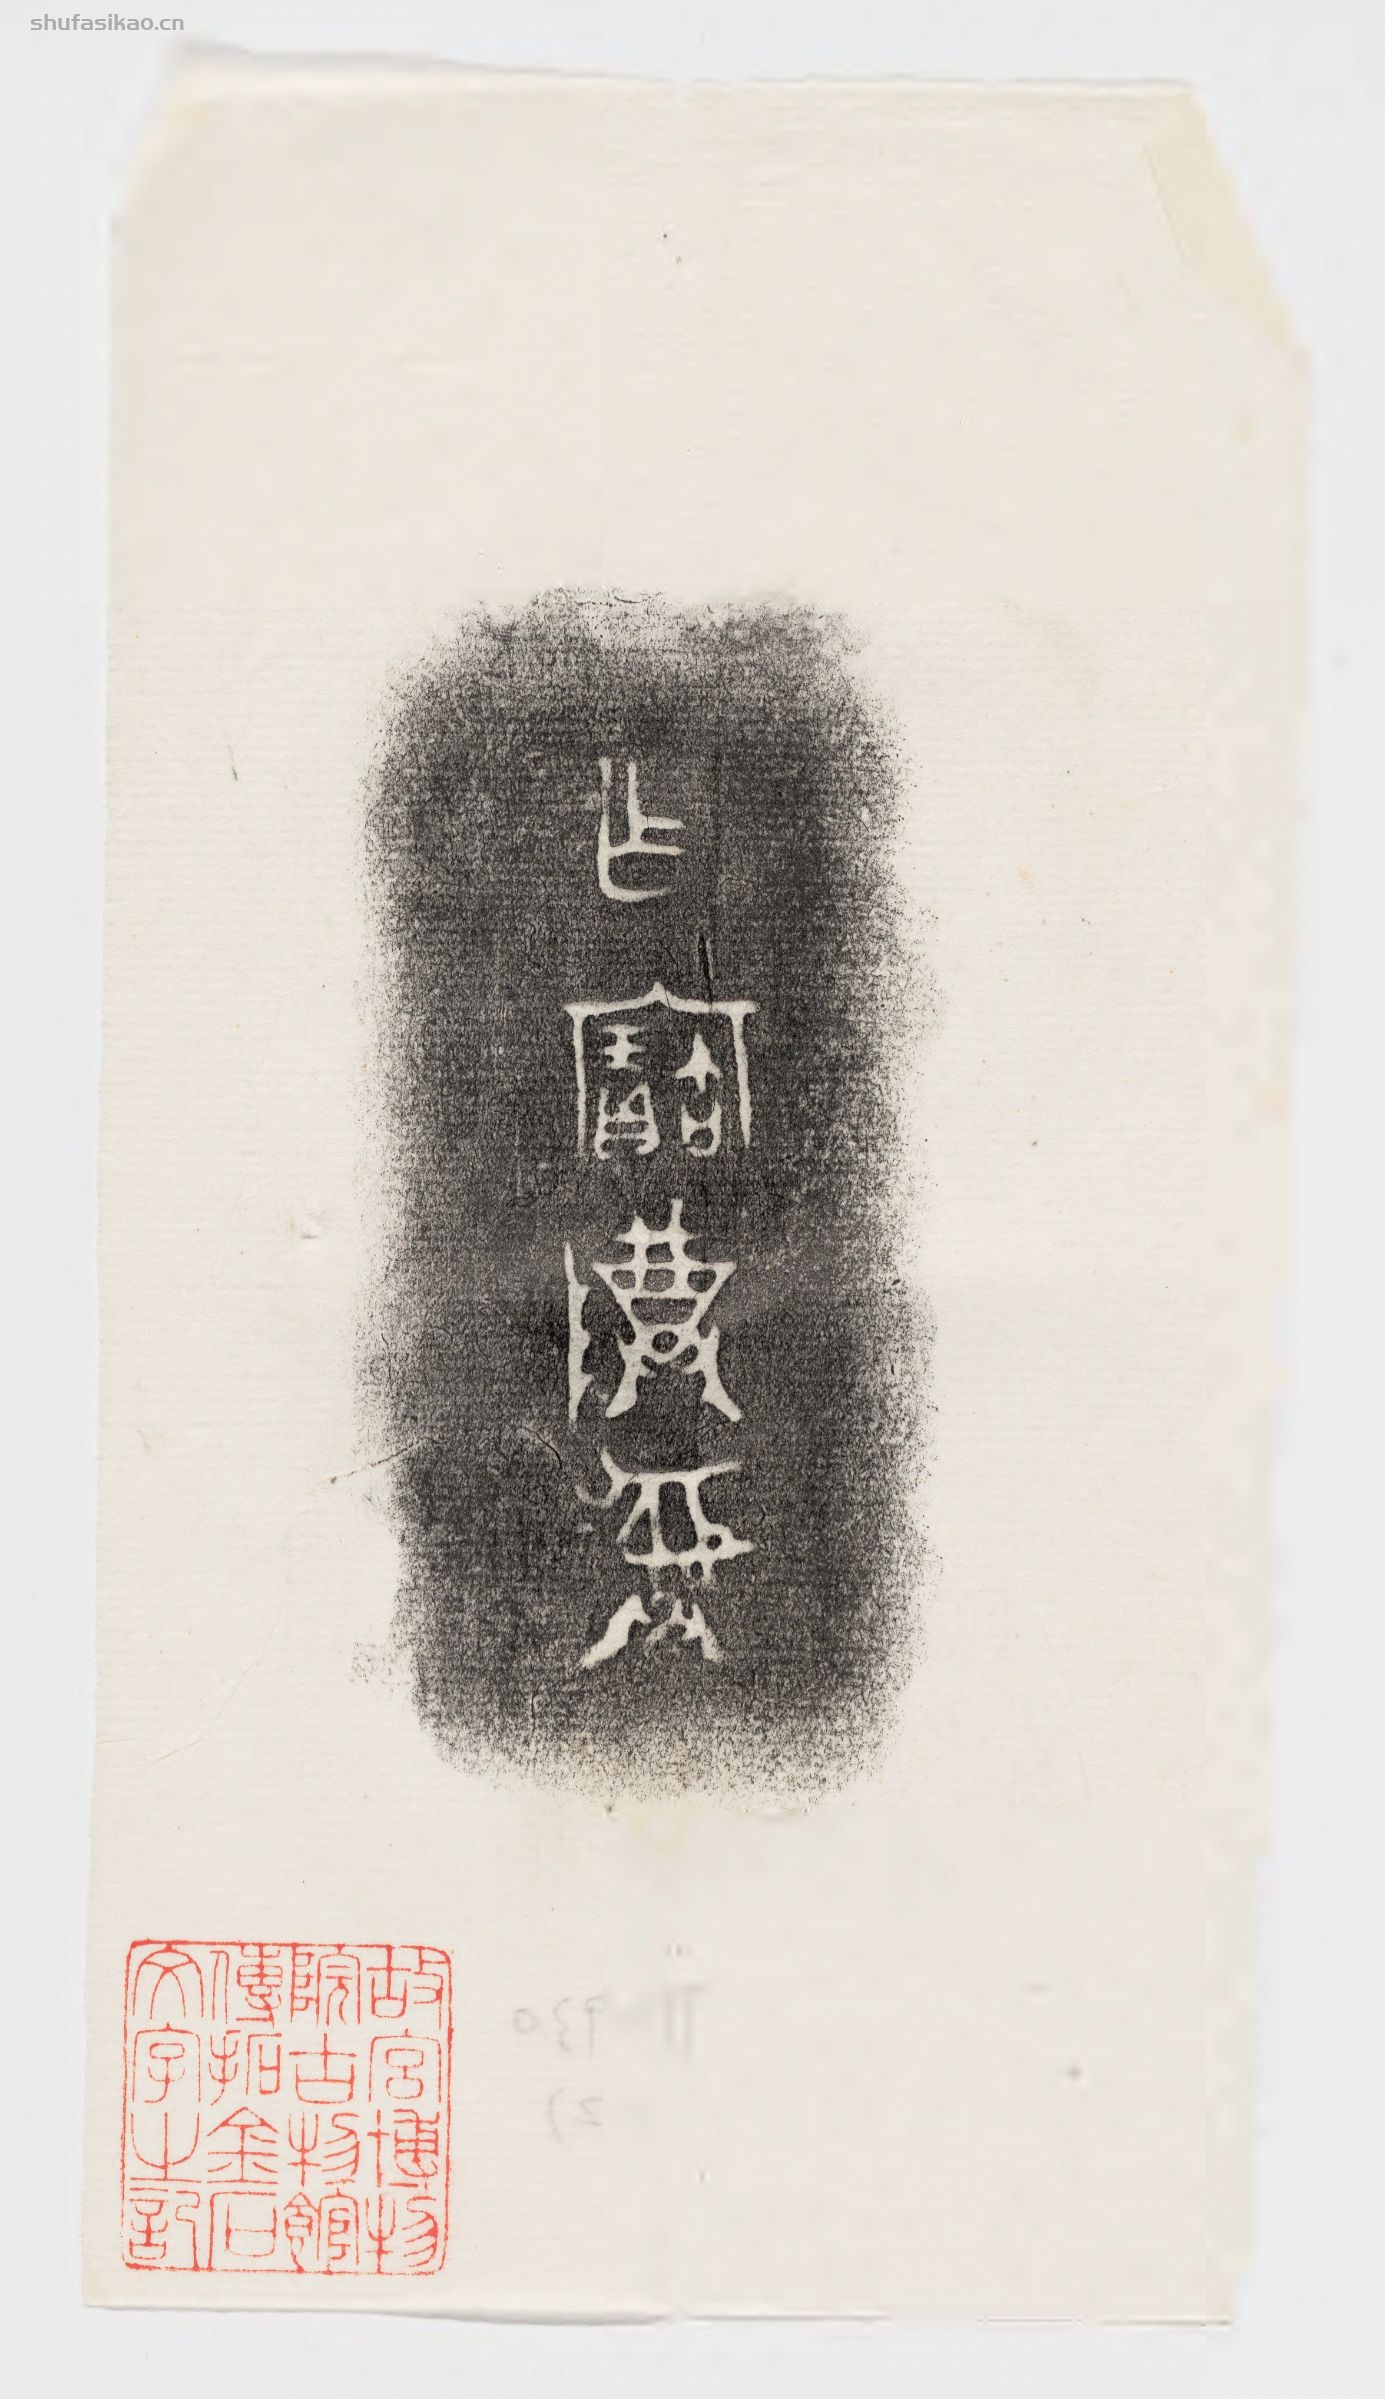 shufasikao.cn
乍
寶
䵼
彝
故宮博物
院古物館
傳拓金石
文字之記